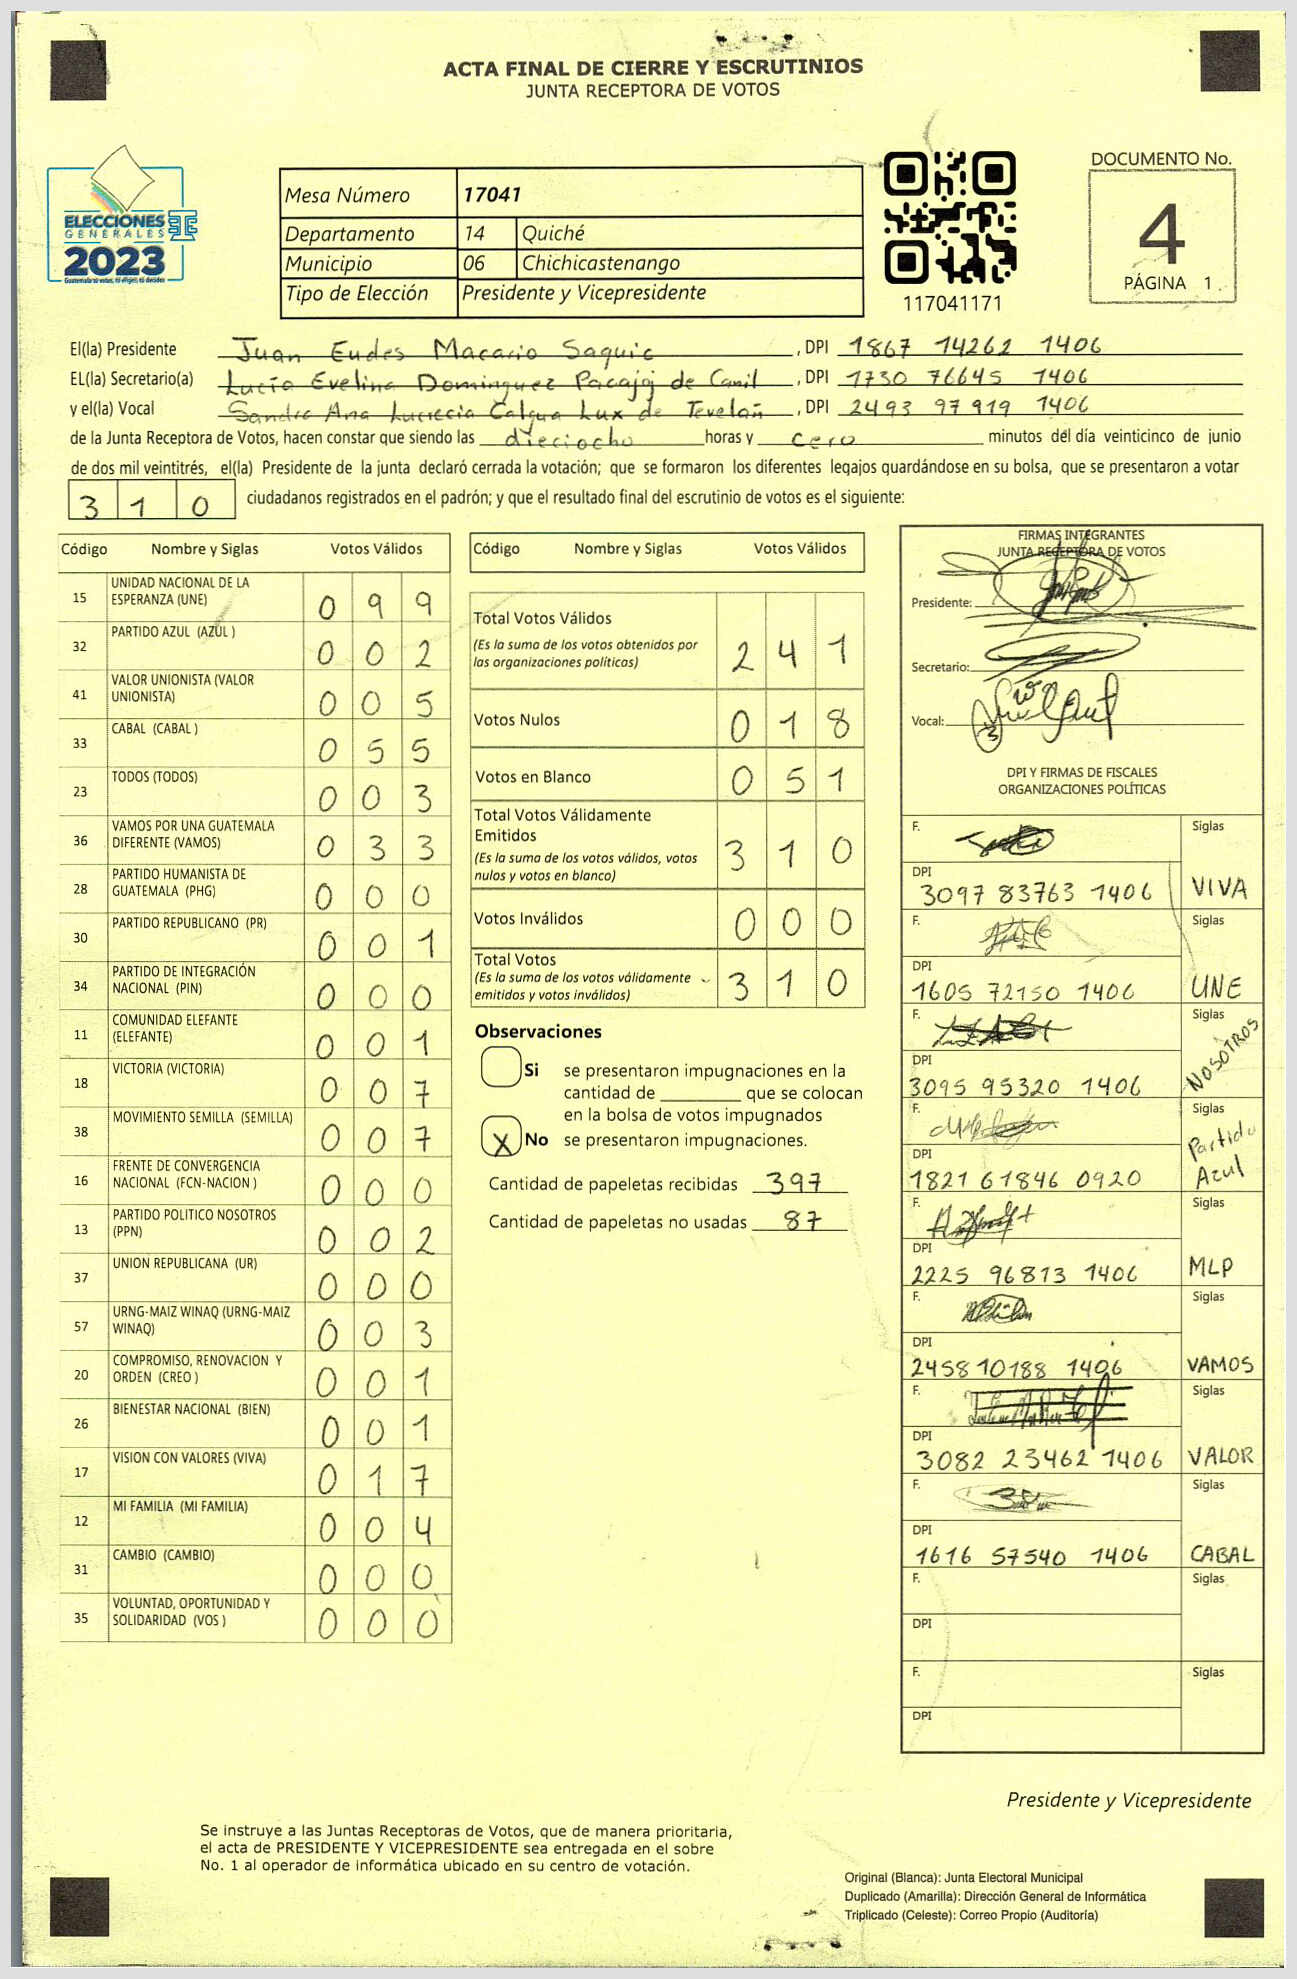 ACTA FINAL DE CIERRE Y ESCRUTINIOS
JUNTA RECEPTORA DE VOTOS
ELECCIONES
GENERALES
2023
Guatemala tú votas, tú eliges, tú decides
Mesa Número 17041
Departamento 14 Quiché
Municipio 06 Chichicastenango
Tipo de Elección Presidente y Vicepresidente
117041171
DOCUMENTO No.
4
PÁGINA 1
El(la) Presidente Juan Eudes Macario Saquic, DPI 1867 14262 1406
EL(la) Secretario(a) Lucía Evelina Dominguez Pacajoj de Canil, DPI 1730 76645 1406
y el(la) Vocal Sandra Ana Lucrecia Calgua Lux de Tevelán, DPI 2493 97919 1406
de la Junta Receptora de Votos, hacen constar que siendo las dieciocho horas y cero minutos del día veinticinco de junio
de dos mil veintitrés, el(la) Presidente de la junta declaró cerrada la votación; que se formaron los diferentes legajos guardándose en su bolsa, que se presentaron a votar
310 ciudadanos registrados en el padrón; y que el resultado final del escrutinio de votos es el siguiente:
Código Nombre y Siglas Votos Válidos
15 UNIDAD NACIONAL DE LA ESPERANZA (UNE) 0 9 9
32 PARTIDO AZUL (AZUL ) 0 0 2
41 VALOR UNIONISTA (VALOR UNIONISTA) 0 0 5
33 CABAL (CABAL ) 0 5 5
23 TODOS (TODOS) 0 0 3
36 VAMOS POR UNA GUATEMALA DIFERENTE (VAMOS) 0 3 3
28 PARTIDO HUMANISTA DE GUATEMALA (PHG) 0 0 0
30 PARTIDO REPUBLICANO (PR) 0 0 1
34 PARTIDO DE INTEGRACIÓN NACIONAL (PIN) 0 0 0
11 COMUNIDAD ELEFANTE (ELEFANTE) 0 0 1
18 VICTORIA (VICTORIA) 0 0 7
38 MOVIMIENTO SEMILLA (SEMILLA) 0 0 7
16 FRENTE DE CONVERGENCIA NACIONAL (FCN-NACION ) 0 0 0
13 PARTIDO POLITICO NOSOTROS (PPN) 0 0 2
37 UNION REPUBLICANA (UR) 0 0 0
57 URNG-MAIZ WINAQ (URNG-MAIZ WINAQ) 0 0 3
20 COMPROMISO, RENOVACION Y ORDEN (CREO ) 0 0 1
26 BIENESTAR NACIONAL (BIEN) 0 0 1
17 VISION CON VALORES (VIVA) 0 1 7
12 MI FAMILIA (MI FAMILIA) 0 0 4
31 CAMBIO (CAMBIO) 0 0 0
35 VOLUNTAD, OPORTUNIDAD Y SOLIDARIDAD (VOS ) 0 0 0
Código Nombre y Siglas Votos Válidos
Total Votos Válidos 2 4 1
(Es la suma de los votos obtenidos por
las organizaciones políticas)
Votos Nulos 0 1 8
Votos en Blanco 0 5 1
Total Votos Válidamente
Emitidos 3 1 0
(Es la suma de los votos válidos, votos
nulos y votos en blanco)
Votos Inválidos 0 0 0
Total Votos 3 1 0
(Es la suma de los votos válidamente
emitidos y votos inválidos)
Observaciones
Si se presentaron impugnaciones en la
cantidad de ________ que se colocan
en la bolsa de votos impugnados
X No se presentaron impugnaciones.
Cantidad de papeletas recibidas 397
Cantidad de papeletas no usadas 87
FIRMAS INTEGRANTES
JUNTA RECEPTORA DE VOTOS
Presidente:
Secretario:
Vocal:
DPI Y FIRMAS DE FISCALES
ORGANIZACIONES POLÍTICAS
F. Siglas
DPI
3097 83763 1406 VIVA
F. Siglas
DPI
1605 72150 1406 UNE
F. Siglas
DPI
3095 95320 1406 NOSOTROS
F. Siglas
DPI
1821 61846 0920 Partido Azul
F. Siglas
DPI
2225 96813 1406 MLP
F. Siglas
DPI
2458 10188 1406 VAMOS
F. Siglas
DPI
3082 23462 1406 VALOR
F. Siglas
DPI
1616 57540 1406 CABAL
F. Siglas
DPI
F. Siglas
DPI
Presidente y Vicepresidente
Se instruye a las Juntas Receptoras de Votos, que de manera prioritaria,
el acta de PRESIDENTE Y VICEPRESIDENTE sea entregada en el sobre
No. 1 al operador de informática ubicado en su centro de votación.
Original (Blanca): Junta Electoral Municipal
Duplicado (Amarilla): Dirección General de Informática
Triplicado (Celeste): Correo Propio (Auditoría)